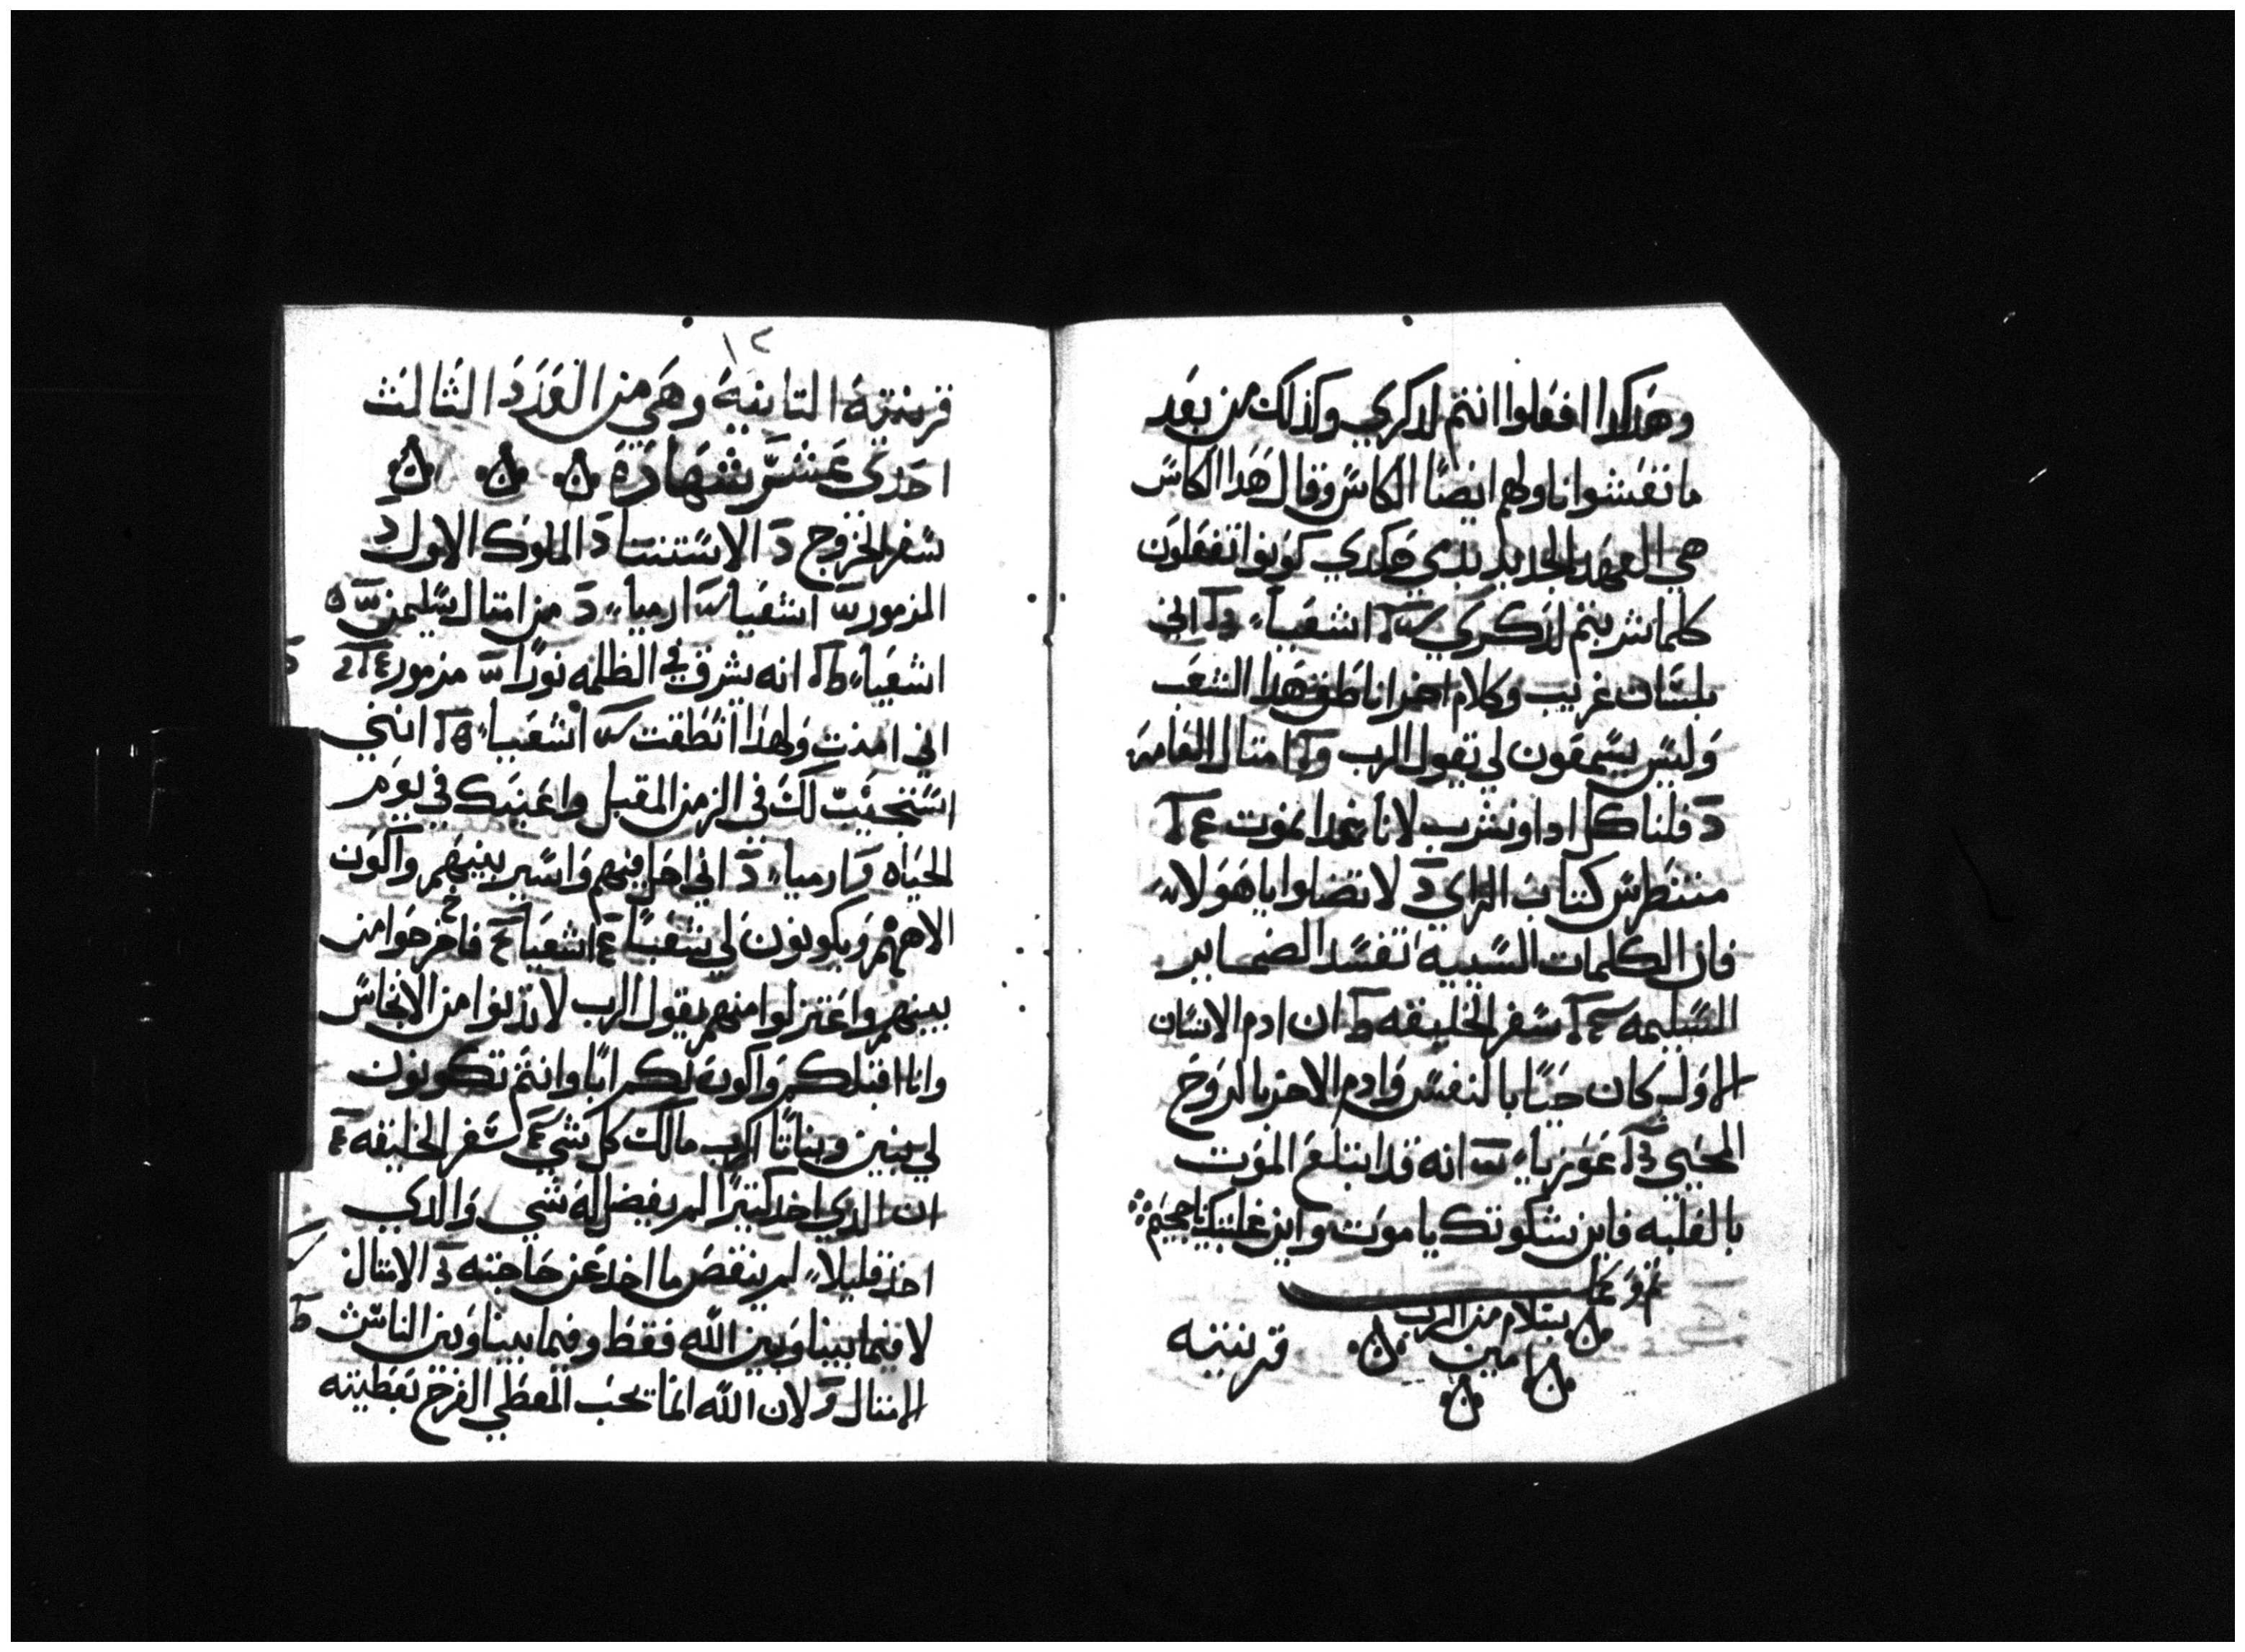 وهدكدا افعلوا انتم لدكري وكذلك من بعد
ما تعشوا ناولهم ايضًا الكاس وقال هدا الكاس
هي العهد الجديد بدمي هكدي كونوا تفعلون
كلما شربتم لدكري اشعيا اني
بلسان غريب وكلام اخر اناطق هدا الشعب
وليس يسمعون لي تقول الرب امتال العامه
قلنا كل ادا ونشرب لانا غدا نموت
كتاب الراي لا تضلوا يا هولا
فان الكلمات السيية تفسد الضماير
السليمه سفر الخليقه ان ادم الانسان
الاول كان حيًا بالنفس وادم الاخر بالروح
المحيي عوزيا انه قد ابتلع الموت
بالغلبه فاين شكوتك يا موت واين غلبتك يا جحيم
تم وكمل
بسلام من الرب
امين
قرنتيه
١٢
قرنتية التانية وهي من العدد الثالث
احدى عشر شهادة
سفر الخروج د الاستتنا د الملوك الاول د
المزمور اشعيا ارميا د من امتال سليمن ه
اشعيا انه يشرق في الظلمه نورًا مزمور
اني امنت ولهذا انطقت اشعيا انني
استجيب لك في الزمن المقبل واعينك في يوم
الحياه ارميا د اني احل فيهم واسير بينهم واكون
الاههم ويكونون لي شعبًا اشعيا فاخرجوا من
بينهم واعتزلوا منهم يقول الرب لا تدنوا من الانجاس
وانا اقبلكم واكون لكم ابًا وانتم تكونون
لي بنين وبناتًا الرب مالك كل شي سفر الخليقه
ان الدي اخد كتيرًا لم يفضل له شي والدي
اخد قليلًا لم ينقص ما اخد عن حاجته الامتال
لا فيما بيننا وبين الله فقط وفيما بيننا وبين الناس
الامتال لان الله انما يحب المعطي الفرح بعطيته